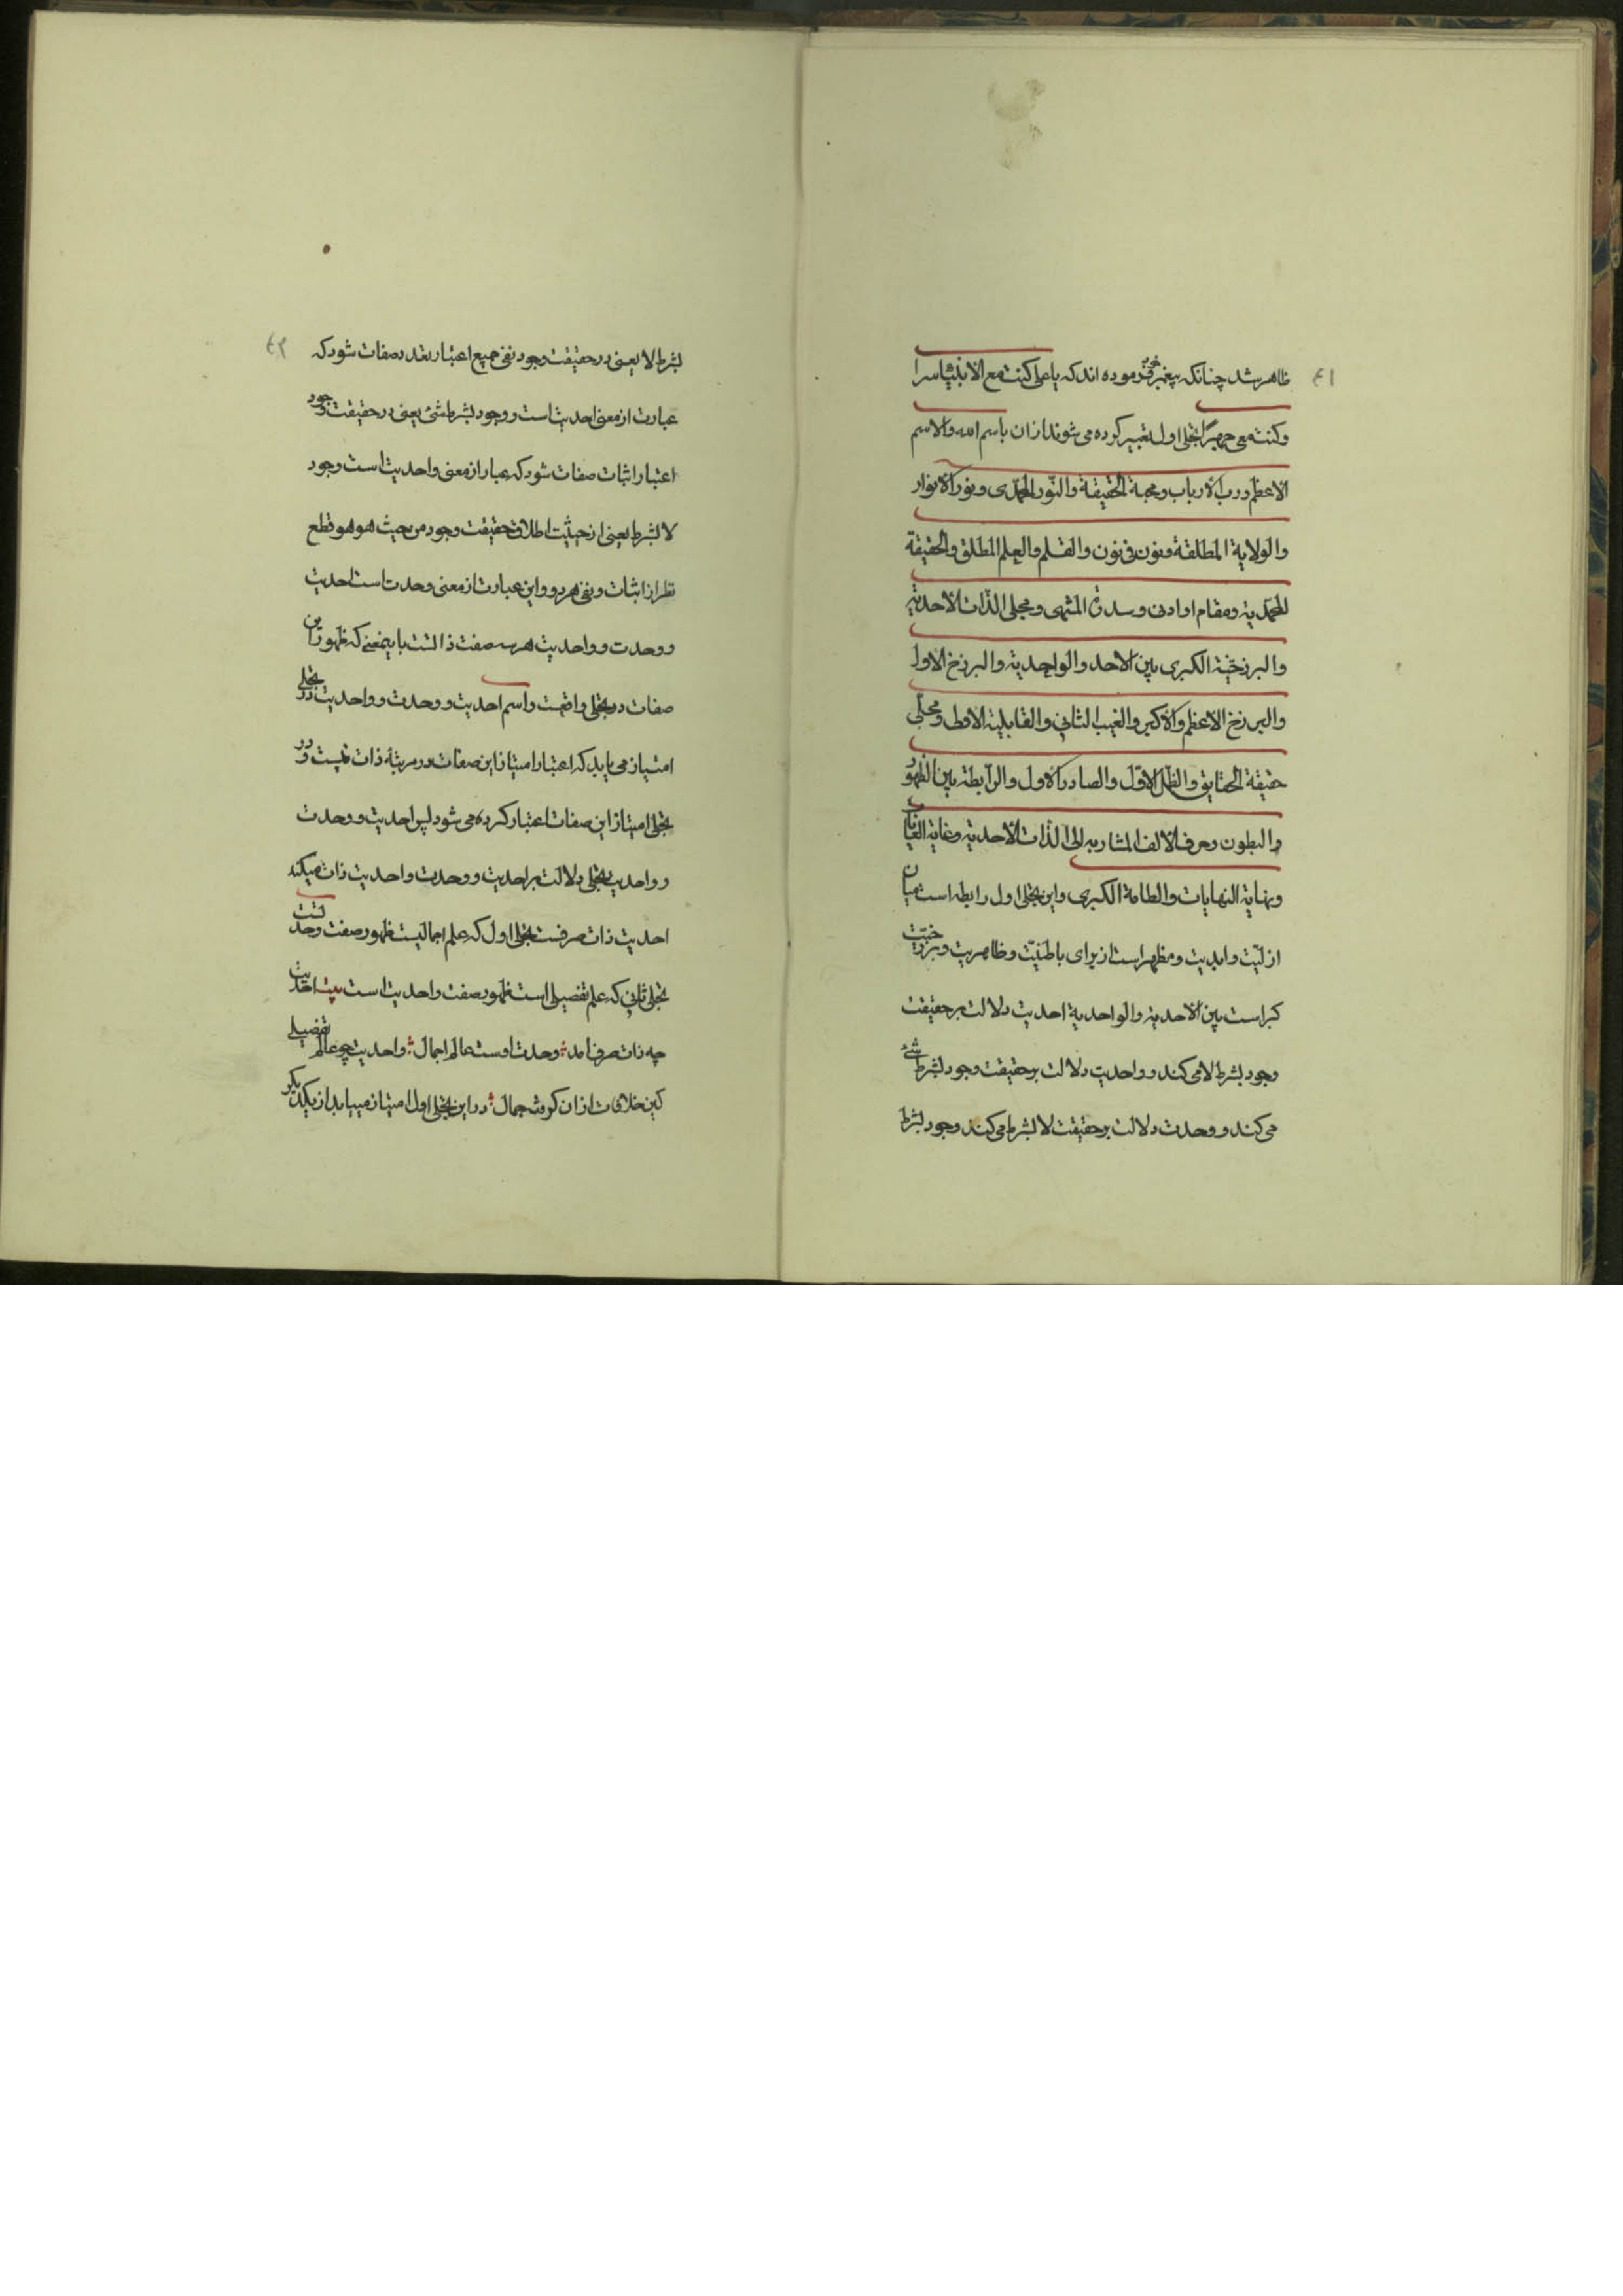 ٤١
ظاهر شد چنانکه پیغمبر فرموده اند که یا علی کنت مع الانبیا سرا
وکنت معی جهرا تجلی اول تعبیر کرده می شوند ازان باسم الله والاسم
الاعظم ورب الارباب ومحبة الحقیقة والنور المحمدی ونور الانوار
والولایة المطلقة ونون فی نون والقلم والعلم المطلق والحقیقة
المحمدیه ومقام او ادنی وسدرة المنتهی ومجلی الذات الاحدیه
والبرزخیة الکبری بین الاحد والواحدیه والبرزخ الاول
والبرزخ الاعظم والاکبر والغیب الثانی والقابلیة الاولی ومجلی
حقیقة الحقایق والظل الاول والصادر الاول والرابطة بین الظهور
والبطون وحرف الالف المشار به الی الذات الاحدیه وغایة الغایات
ونهایة النهایات والطامة الکبری واین تجلی اول رابطه است میان
ازلیت وابدیت ومظهر است از برای باطنیت وظاهریت وبرزخیت
کبراست بین الاحدیه والواحدیة احدیت دلالت بر حقیقت
وجود بشرط لا می کند و واحدیت دلالت بر حقیقت وجود بشرط شئ
می کند و وحدت دلالت بر حقیقت لا بشرط می کند وجود بشرط
٤٢
بشرط لا یعنی در حقیقت وجود نفی جمیع اعتبار تعدد صفات شود که
عبارت از معنی احدیث است و وجود بشرط شئ یعنی در حقیقت وجود
اعتبار اثبات صفات شود که عبار از معنی واحدیت است وجود
لا بشرط یعنی از حیثیت اطلاق حقیقت وجود من حیث هو هو قطع
نظر از اثبات و نفی هر دو واین عبارت از معنی وحدت است احدیت
و وحدت و واحدیث هر سه صفت ذاتست باینمعنی که ظهور این
صفات در تجلی واقعیت واسم احدیت و وحدت و واحدیت در تجلی
امتیاز می یابد که اعتبار امتیاز این صفات در مرتبهٔ ذات نیست و در
تجلی امتیاز این صفات اعتبار کرده می شود پس احدیت و وحدت
و واحدیت تجلی دلالت بر احدیت و وحدت واحدیت ذات میکند
احدیت ذات صرفست تجلی اول که علم اجمالیست ظهور صفت وحدتست
تجلی ثانی که علم تفصیلی است ظهور صفت واحدیت است بیت احدیث
چه ذات صرف امد وحدت اوست عالم اجمال واحدیت چو عالم تفصیلی
کین ازان کرفت جمال در این تجلی اول امتیاز مییابد از یکدیکر